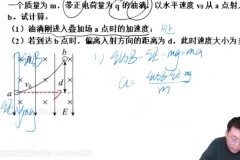 一个质量为 m、带正电荷量为 q 的油滴，以水平速度 v₀从 a 点射
b。试计算：
（1）油滴刚进入叠加场 a 点时的加速度；
（2）若到达 b 点时，偏离入射方向的距离为 d，此时速度大小为多
B b
1) qv₀B - qE - mg = ma
a
d
a = (qv₀B - qE - mg) / m
E